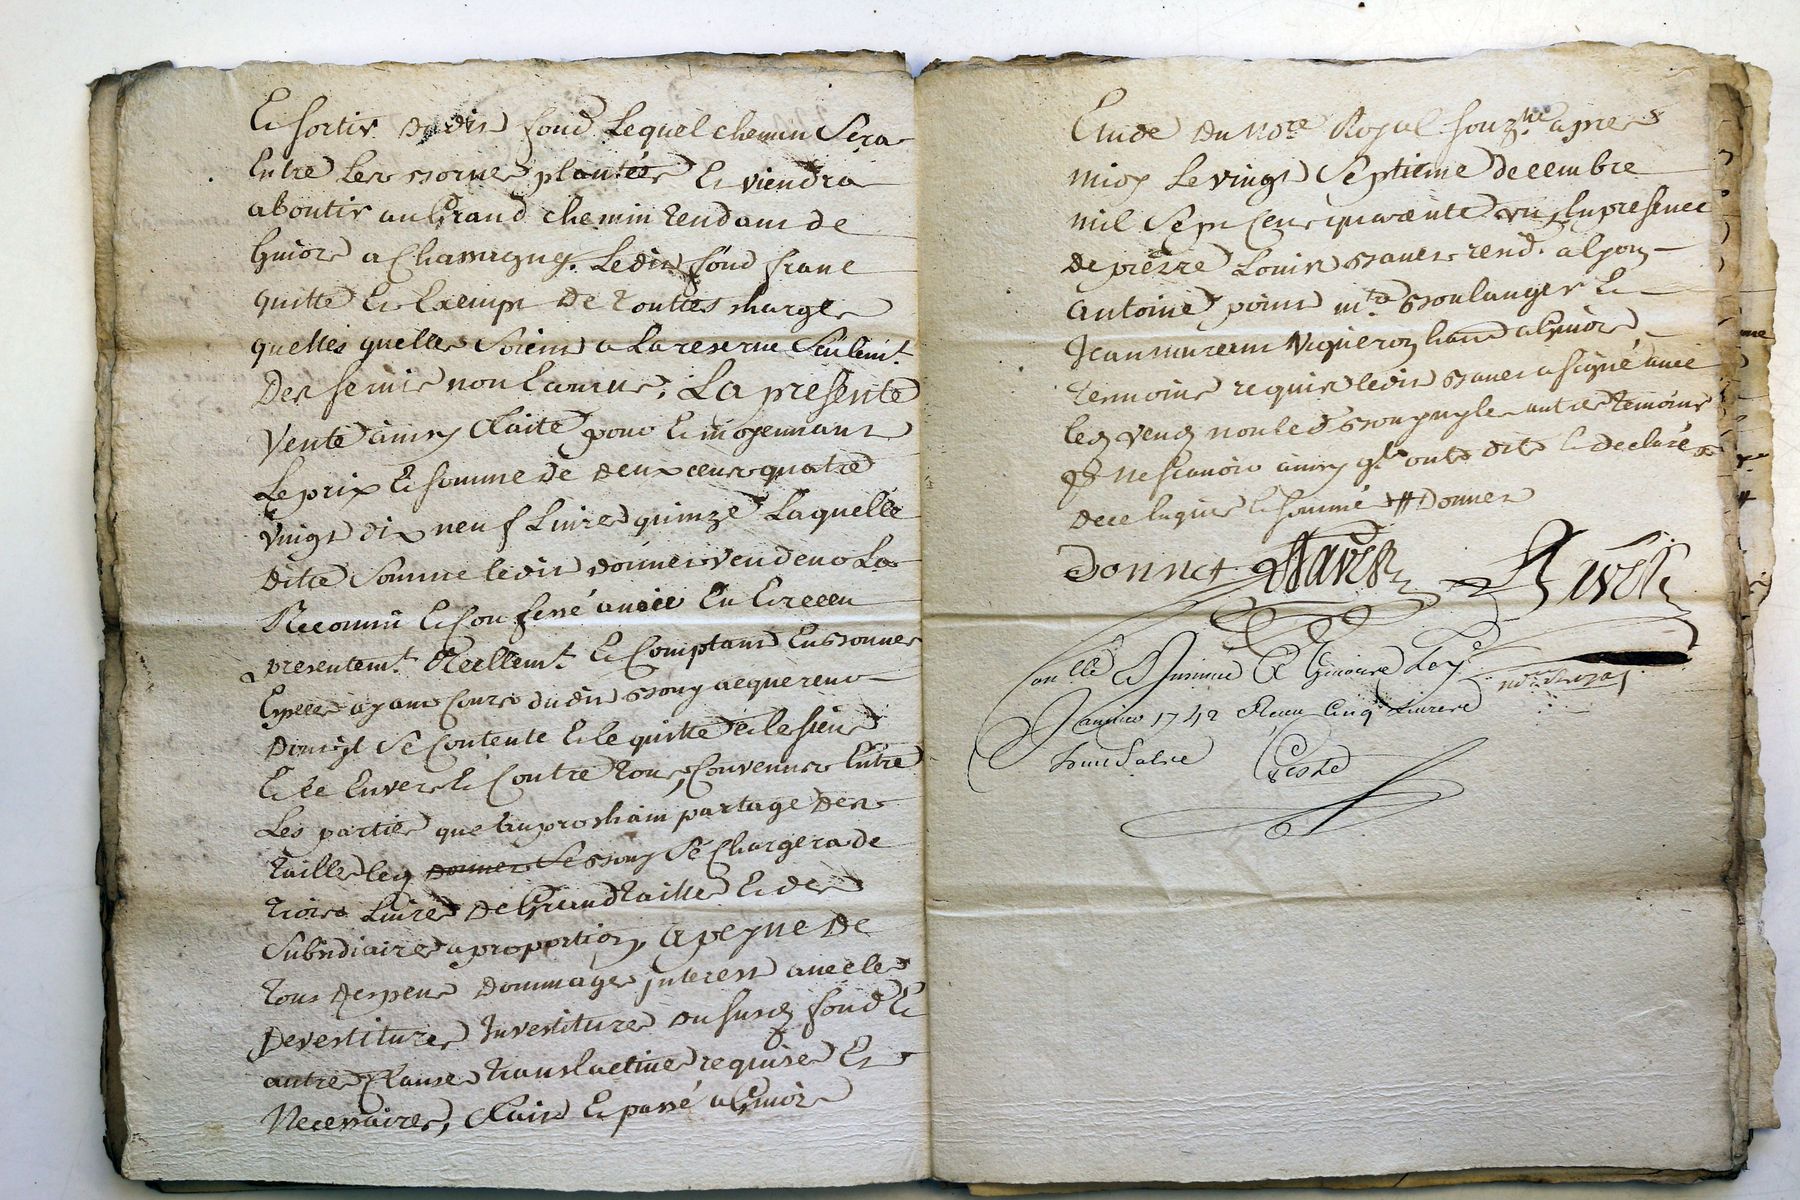 Et sortir dudit fond lequel chemin sera
Entre les bornes plantées Et viendra
aboutir au Grand chemin tendant de
Givors a Chassagny. Ledit fond franc
quitte Et Exempt de touttes charges
quelles quelles soient a La reserve seulemt
Des servis non Courus, La presente
Vente ainsy faite pour Et moyennant
Le prix Et somme de deux cens quatre
vingt dix neuf Livres quinze Laquelle
ditte somme ledit Donnet vendeur La
Reconnu Et Confessé avoir Eu Et receu
presentemt Reellemt Et Comptant En bonnes
Especes ayant Cours dudit Bony acquereur
Dont il se Contente Et le quitte Et les siens
Et de Envers Et Contre tous, Convenu Entre
Les parties que au prochain partage des
tailles led Donnet Le Bony se Chargera de
trois Livres de Grand taille Et des
subsidiaires a proportion, a peyne de
tous despens dommages interest avec les
Devestiture Investiture du susd fond Et
autres Clauses translatives requises Et
Necessaires, fait Et passé a Givors
Etude du Nore Royal souzne apres
midy Le vingt septieme decembre
mil sept cens quarante un, En presence
de pierre Louis Baves rend. a Lyon
antoine point mtre Boulanger Et
Jean Vigneron hant a Givors
temoins requis ledit Baves a signé avec
led vend non led Bony ny les autres temoins
pr ne scavoir ainsy qls ont dit Et declaré
de ce Enquis Et sommé # Donnet
Donnet Baves
Conllé Et Insinué a Givors Le
Janvier 1742 Receu Cinq Livres
no. Royal